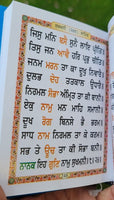 ਜਿਸੁ ਮਨਿ ਬਸੈ ਸੁਨੈ ਲਾਇ ਪ੍ਰੀਤਿ
ਤਿਸੁ ਜਨ ਆਵੈ ਹਰਿ ਪ੍ਰਭੁ ਚੀਤਿ
ਜਨਮ ਮਰਨ ਤਾ ਕਾ ਦੂਖੁ ਨਿਵਾਰੈ
ਦੁਲਭ ਦੇਹ ਤਤਕਾਲ ਉਧਾਰੈ
ਨਿਰਮਲ ਸੋਭਾ ਅੰਮ੍ਰਿਤ ਤਾ ਕੀ ਬਾਨੀ
ਏਕੁ ਨਾਮੁ ਮਨ ਮਾਹਿ ਸਮਾਨੀ
ਦੂਖ ਰੋਗ ਬਿਨਸੇ ਭੈ ਭਰਮ
ਸਾਧ ਨਾਮ ਨਿਰਮਲ ਤਾ ਕੇ ਕਰਮ
ਸਭ ਤੇ ਊਚ ਤਾ ਕੀ ਸੋਭਾ ਬਨੀ
ਨਾਨਕ ਇਹ ਗੁਣਿ ਨਾਮੁ ਸੁਖਮਨੀ